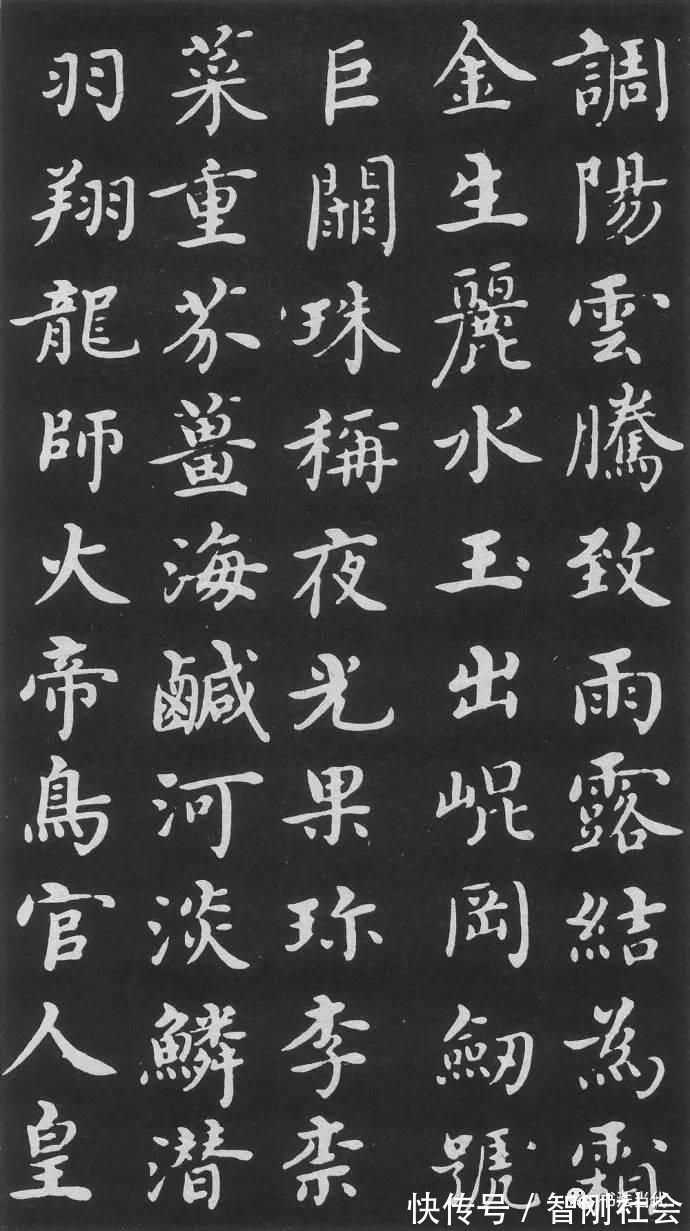 調陽雲騰致雨露結為霜
金生麗水玉出崐岡劒號
巨闕珠稱夜光果珎李柰
菜重芥薑海鹹河淡鱗潛
羽翔龍師火帝鳥官人皇
快传号/智刚社会